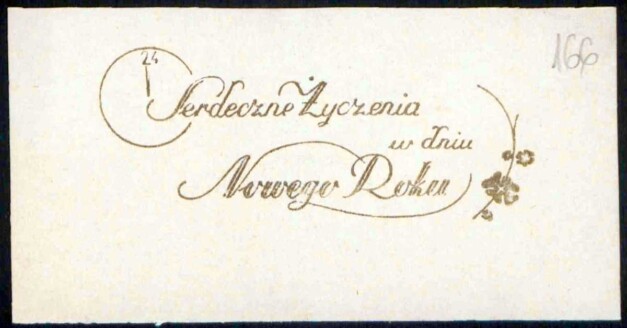 166
24
Serdeczne Życzenia
w dniu
Nowego Roku